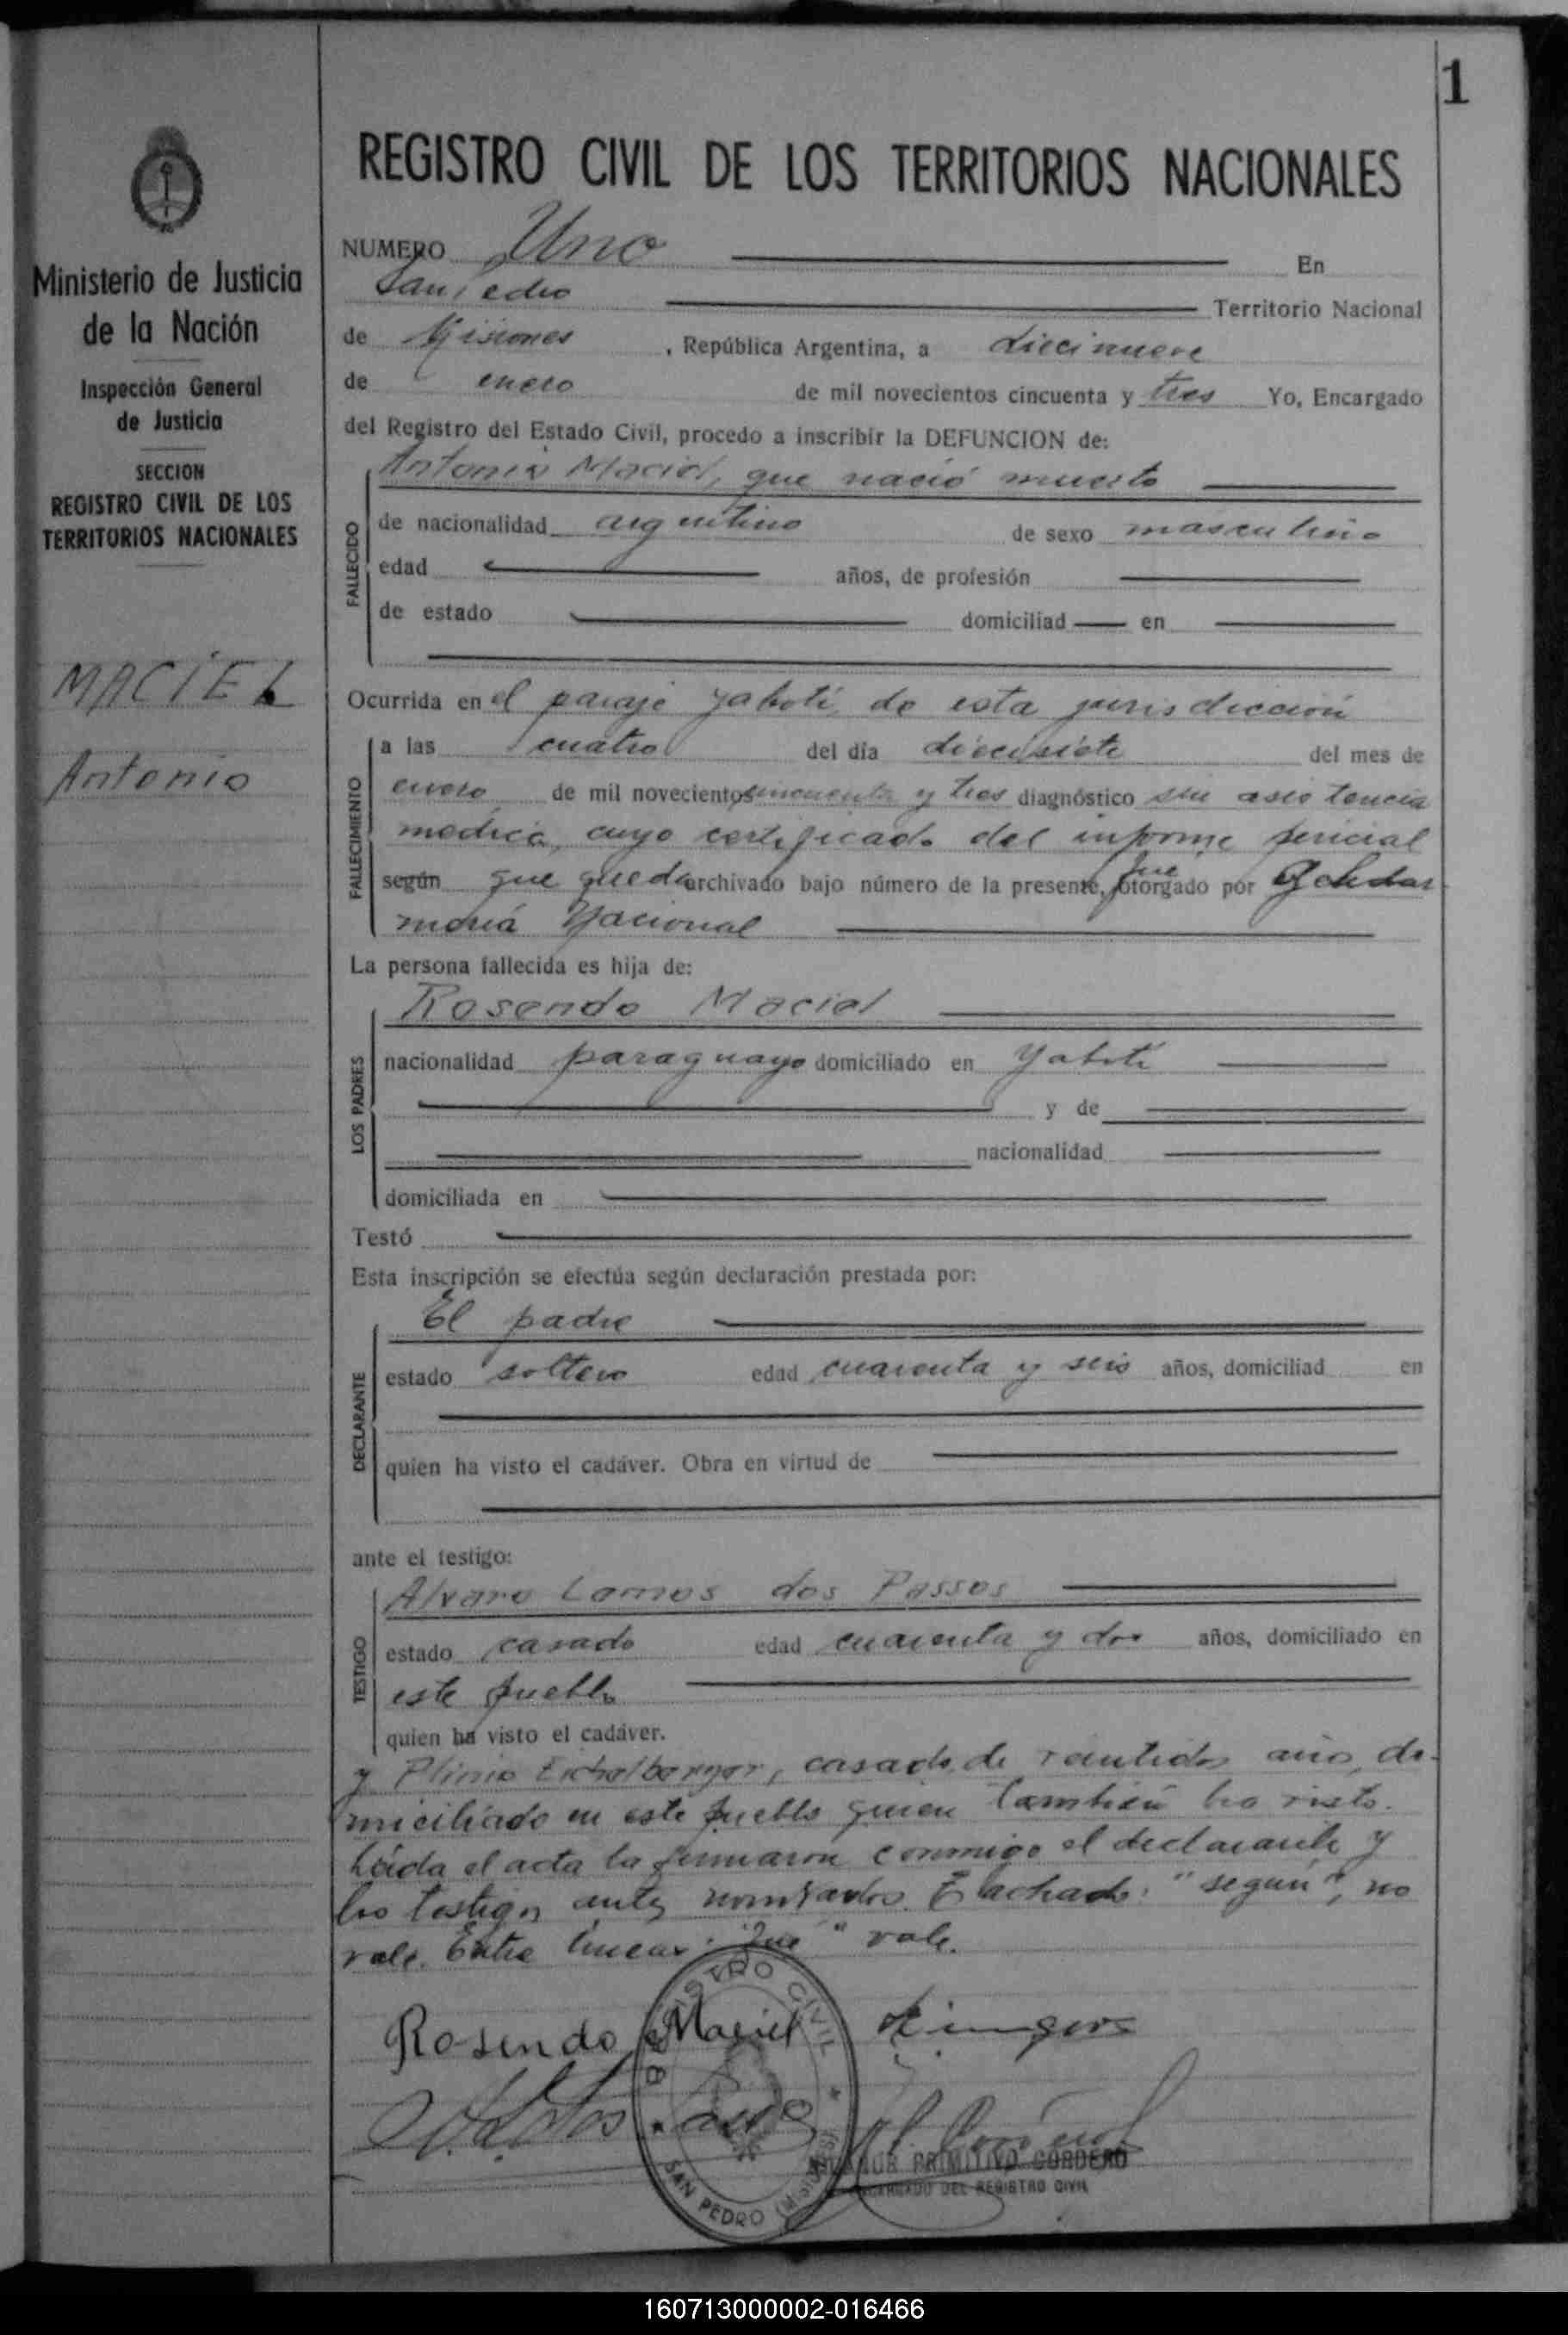 1
REGISTRO CIVIL DE LOS TERRITORIOS NACIONALES
Ministerio de Justicia
de la Nación
Inspección General
de Justicia
SECCION
REGISTRO CIVIL DE LOS
TERRITORIOS NACIONALES
MACIEL
Antonio
NUMERO Uno En
San Pedro Territorio Nacional
de Misiones , República Argentina, a diecinueve
de enero de mil novecientos cincuenta y tres Yo, Encargado
del Registro del Estado Civil, procedo a inscribir la DEFUNCION de:
Antonio Maciel, que nació muerto
FALLECIDO
de nacionalidad argentino de sexo masculino
edad años, de profesión
de estado domiciliad en
Ocurrida en el paraje Yabotí, de esta jurisdicción
FALLECIMIENTO
a las cuatro del día diecisiete del mes de
enero de mil novecientos cincuenta y tres diagnóstico sin asistencia
medica, cuyo certificado del informe pericial
según que queda archivado bajo número de la presente, fue otorgado por Gendar
mería Nacional
La persona fallecida es hija de:
LOS PADRES
Rosendo Maciel
nacionalidad paraguayo domiciliado en Yabotí
y de
nacionalidad
domiciliada en
Testó
Esta inscripción se efectúa según declaración prestada por:
DECLARANTE
El padre
estado soltero edad cuarenta y seis años, domiciliad en
quien ha visto el cadáver. Obra en virtud de
ante el testigo:
TESTIGO
Alvaro Lemos dos Passos
estado casado edad cuarenta y dos años, domiciliado en
este pueblo
quien ha visto el cadáver.
y Plinio Eichelberger, casado, de veintidos años, do-
miciliado en este pueblo quien también ha visto.
Leída el acta la firmaron conmigo el declarante y
los testigos antes nombrados. Tachado: "según", no
vale. Entre lineas: "fue" vale.
Rosendo Maciel
REGISTRO CIVIL
SAN PEDRO (Misiones)
PRIMITIVO CORDERO
ENCARGADO DEL REGISTRO CIVIL
160713000002-016466